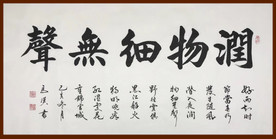 潤物細無聲
好雨知時
節當春乃
發生隨風
潛入夜潤
物細無聲
野徑雲俱
黑江船火
獨明曉看
紅濕處花
重錦官城
書